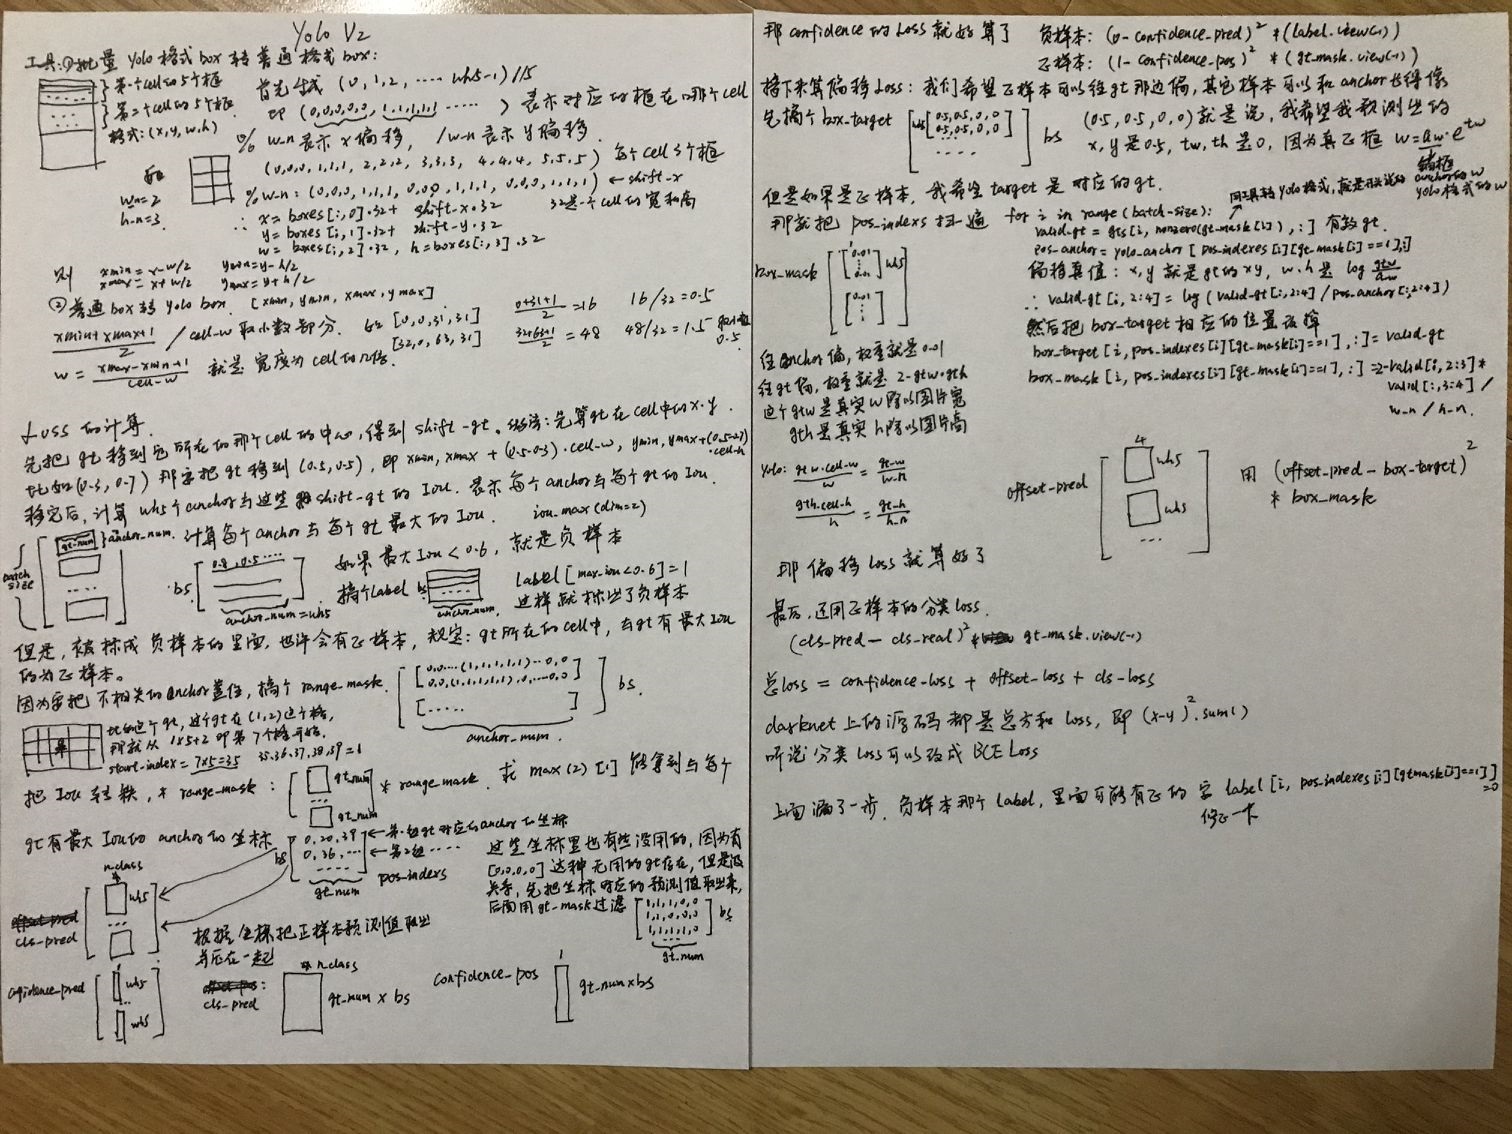 Yolo V2
工具:①批量 Yolo 格式 box 转普通格式 box:
第一个cell的5个框
第二个cell的5个框
格式:(x,y,w,h)
首先生成 (0,1,2, .... wh5-1)//5
即 (0,0,0,0,0, 1,1,1,1,1 .....) 表示对应的框在哪个cell
% w_n 表示 x 偏移, /w_n 表示 y 偏移.
w_n=2
h_n=3
(0,0,0, 1,1,1, 2,2,2, 3,3,3, 4,4,4, 5,5,5) 每个cell 3个框
%w_n: (0,0,0, 1,1,1, 0,0,0, 1,1,1, 0,0,0, 1,1,1) ← shift-x
∴ x = boxes[i,0]·32 + shift-x·32 32是一个cell的宽和高
y = boxes[i,1]·32 + shift-y·32
w = boxes[i,2]·32, h = boxes[i,3]·32
则 xmin = x-w/2 ymin = y-h/2
xmax = x+w/2 ymax = y+h/2
②普通box转 yolo box. [xmin, ymin, xmax, ymax]
(xmin+xmax+1)/2 / cell-w 取小数部分. 如 [0,0,31,31] (0+31+1)/2 = 16 16/32=0.5
[32,0,63,31] (32+63+1)/2 = 48 48/32=1.5 取小数 0.5
w = (xmax-xmin+1)/cell-w 就是宽度为cell的几倍.
Loss 的计算.
先把 gt 移到它所在的那个cell的中心,得到 shift-gt. 做法:先算gt在cell中的x,y.
比如(0.3, 0.7) 那就把gt移到 (0.5,0.5), 即 xmin, xmax + (0.5-0.3)·cell-w, ymin, ymax+(0.5-0.7)·cell-h
移完后,计算 wh5个anchor与这些shift-gt的Iou. 表示每个anchor与每个gt的Iou.
batch size
gt-num
anchor_num.
计算每个anchor与每个gt最大的Iou. iou_max(dim=2)
bs
0.8, 0.5 ....
anchor_num=wh5
如果最大Iou<0.6, 就是负样本
搞个label bs
anchor_num.
label[max-iou<0.6]=1
这样就标出了负样本
但是,被标成负样本的里面,也许会有正样本,规定:gt所在的cell中,与gt有最大Iou
的为正样本.
因为要把不相关的anchor盖住,搞个 range_mask.
[0,0...(1,1,1,1,1)...0,0]
[0,0,(1,1,1,1,1),0,...0,0]
[.....]
bs.
anchor_num.
比如这个gt,这个gt在(1,2)这个格,
那就从 1x5+2 即第7个格开始.
start-index = 7x5=35 35,36,37,38,39 = 1
把 Iou 转换, * range-mask:
gt_num
...
gt_num
* range mask. 求 max(2)[1] 能拿到与每个
gt有最大Iou的anchor的坐标
bs
0,20,39 ← 第一组gt对应的anchor的坐标
0,36,... ← 第2组 ....
.....
gt_num pos-indexs
这些坐标里也有些没用的,因为有
[0,0,0,0]这种无用的gt存在,但是没
关系,先把坐标对应的预测值取出来,
后面用gt-mask过滤
1,1,1,0,0
1,1,0,0,0
1,1,1,1,1
bs
gt_num
n_class
wh5
...
cls-pred
根据坐标把正样本预测值取出
并压在一起
confidence_pred
1
wh5
...
wh5
cls-pred
n_class
gt_num x bs
confidence_pos
1
gt_num x bs
那 confidence 的 Loss 就好算了 负样本: (0-confidence-pred)² * (label.view(-1))
正样本: (1-confidence-pos)² * (gt-mask.view(-1))
接下来算偏移Loss: 我们希望正样本可以往gt那边偏,其它样本可以和anchor长得像
先搞个box_target
wh5
0.5,0.5,0,0
0.5,0.5,0,0
....
bs
(0.5, 0.5, 0,0)就是说,我希望我预测出的
x,y是0.5, tw,th是0, 因为真正框 w=aw·e^tw
锚框
anchor的w
yolo格式的w
但是如果是正样本,我希望target是对应的gt.
那就把 pos_indexs 扫一遍 for i in range(batch-size):
valid-gt = gts[i, nonzero(gt-mask[i]),:] 有效gt.
pos-anchor = yolo-anchor[pos-indexes[i][gt-mask[i]==1],:]
偏移真值: x,y就是gt的xy, w,h是 log gtw/aw
∴ valid-gt[i,2:4] = log(valid-gt[i,2:4]/pos-anchor[i,2:4])
然后把box-target相应的位置改掉
box_target[i, pos-indexes[i][gt-mask[i]==1],:] = valid-gt
box_mask[i, pos-indexes[i][gt-mask[i]==1],:] = 2-valid[i,2:3]*
valid[:,3:4] /
w_n / h_n.
box_mask
1
0.01
⋮
0.01
wh5
0.01
⋮
往anchor偏,权重就是0.01
往gt偏,权重就是 2-gtw·gth
这个gtw是真实w除以图片宽
gth是真实h除以图片高
yolo: gtw·cell-w / w = gt-w / w_n
gth·cell-h / h = gt-h / h_n
offset-pred
4
wh5
wh5
...
用 (offset-pred - box-target)²
* box_mask
那偏移loss就算好了
最后,还用正样本的分类loss.
(cls-pred - cls-real)² * gt-mask.view(-1)
总loss = confidence-loss + offset-loss + cls-loss
darknet上的源码都是总方和loss, 即 (x-y)².sum()
听说分类Loss可以改成BCELoss
上面漏了一步. 负样本那个Label, 里面可能有正的 令 label[i, pos-indexes[i][gtmask[i]==1]]=0
修正一下